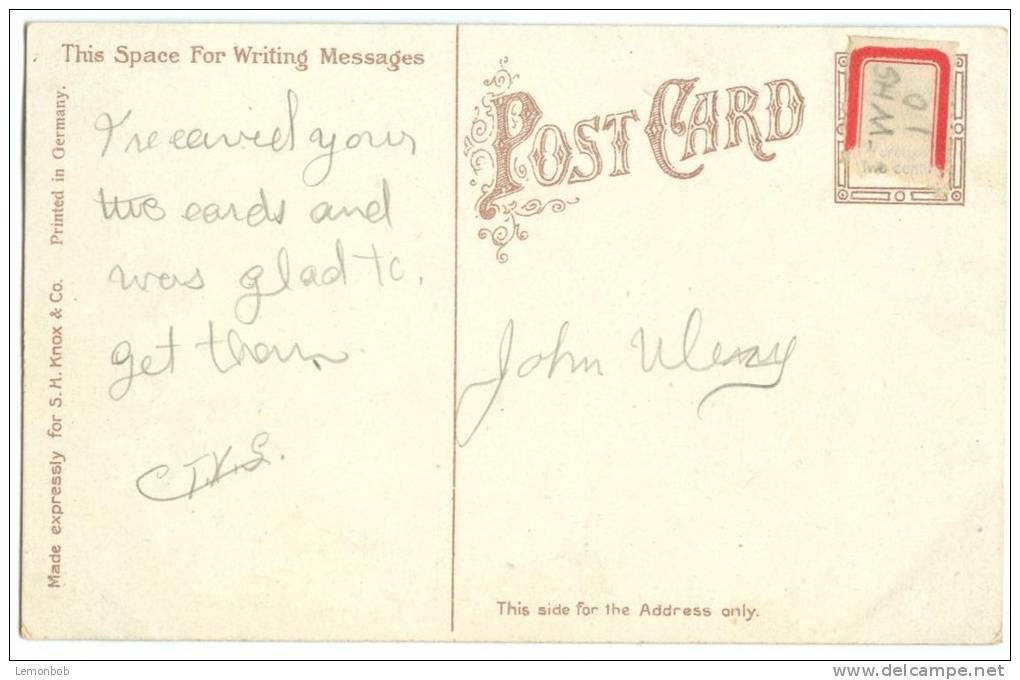 This Space For Writing Messages
Printed in Germany.
Made expressly for S.H. Knox & Co.
I receivid your
two cards and
was glad to.
get them
C.T.K.S.
POST CARD
John
This side for the Address only.
10
Lemonbob
www.delcampe.net